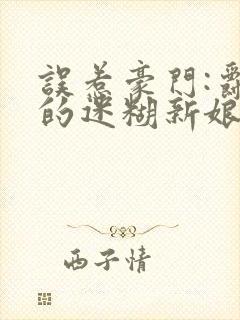 誤惹豪門:
的迷糊新娘
西子情